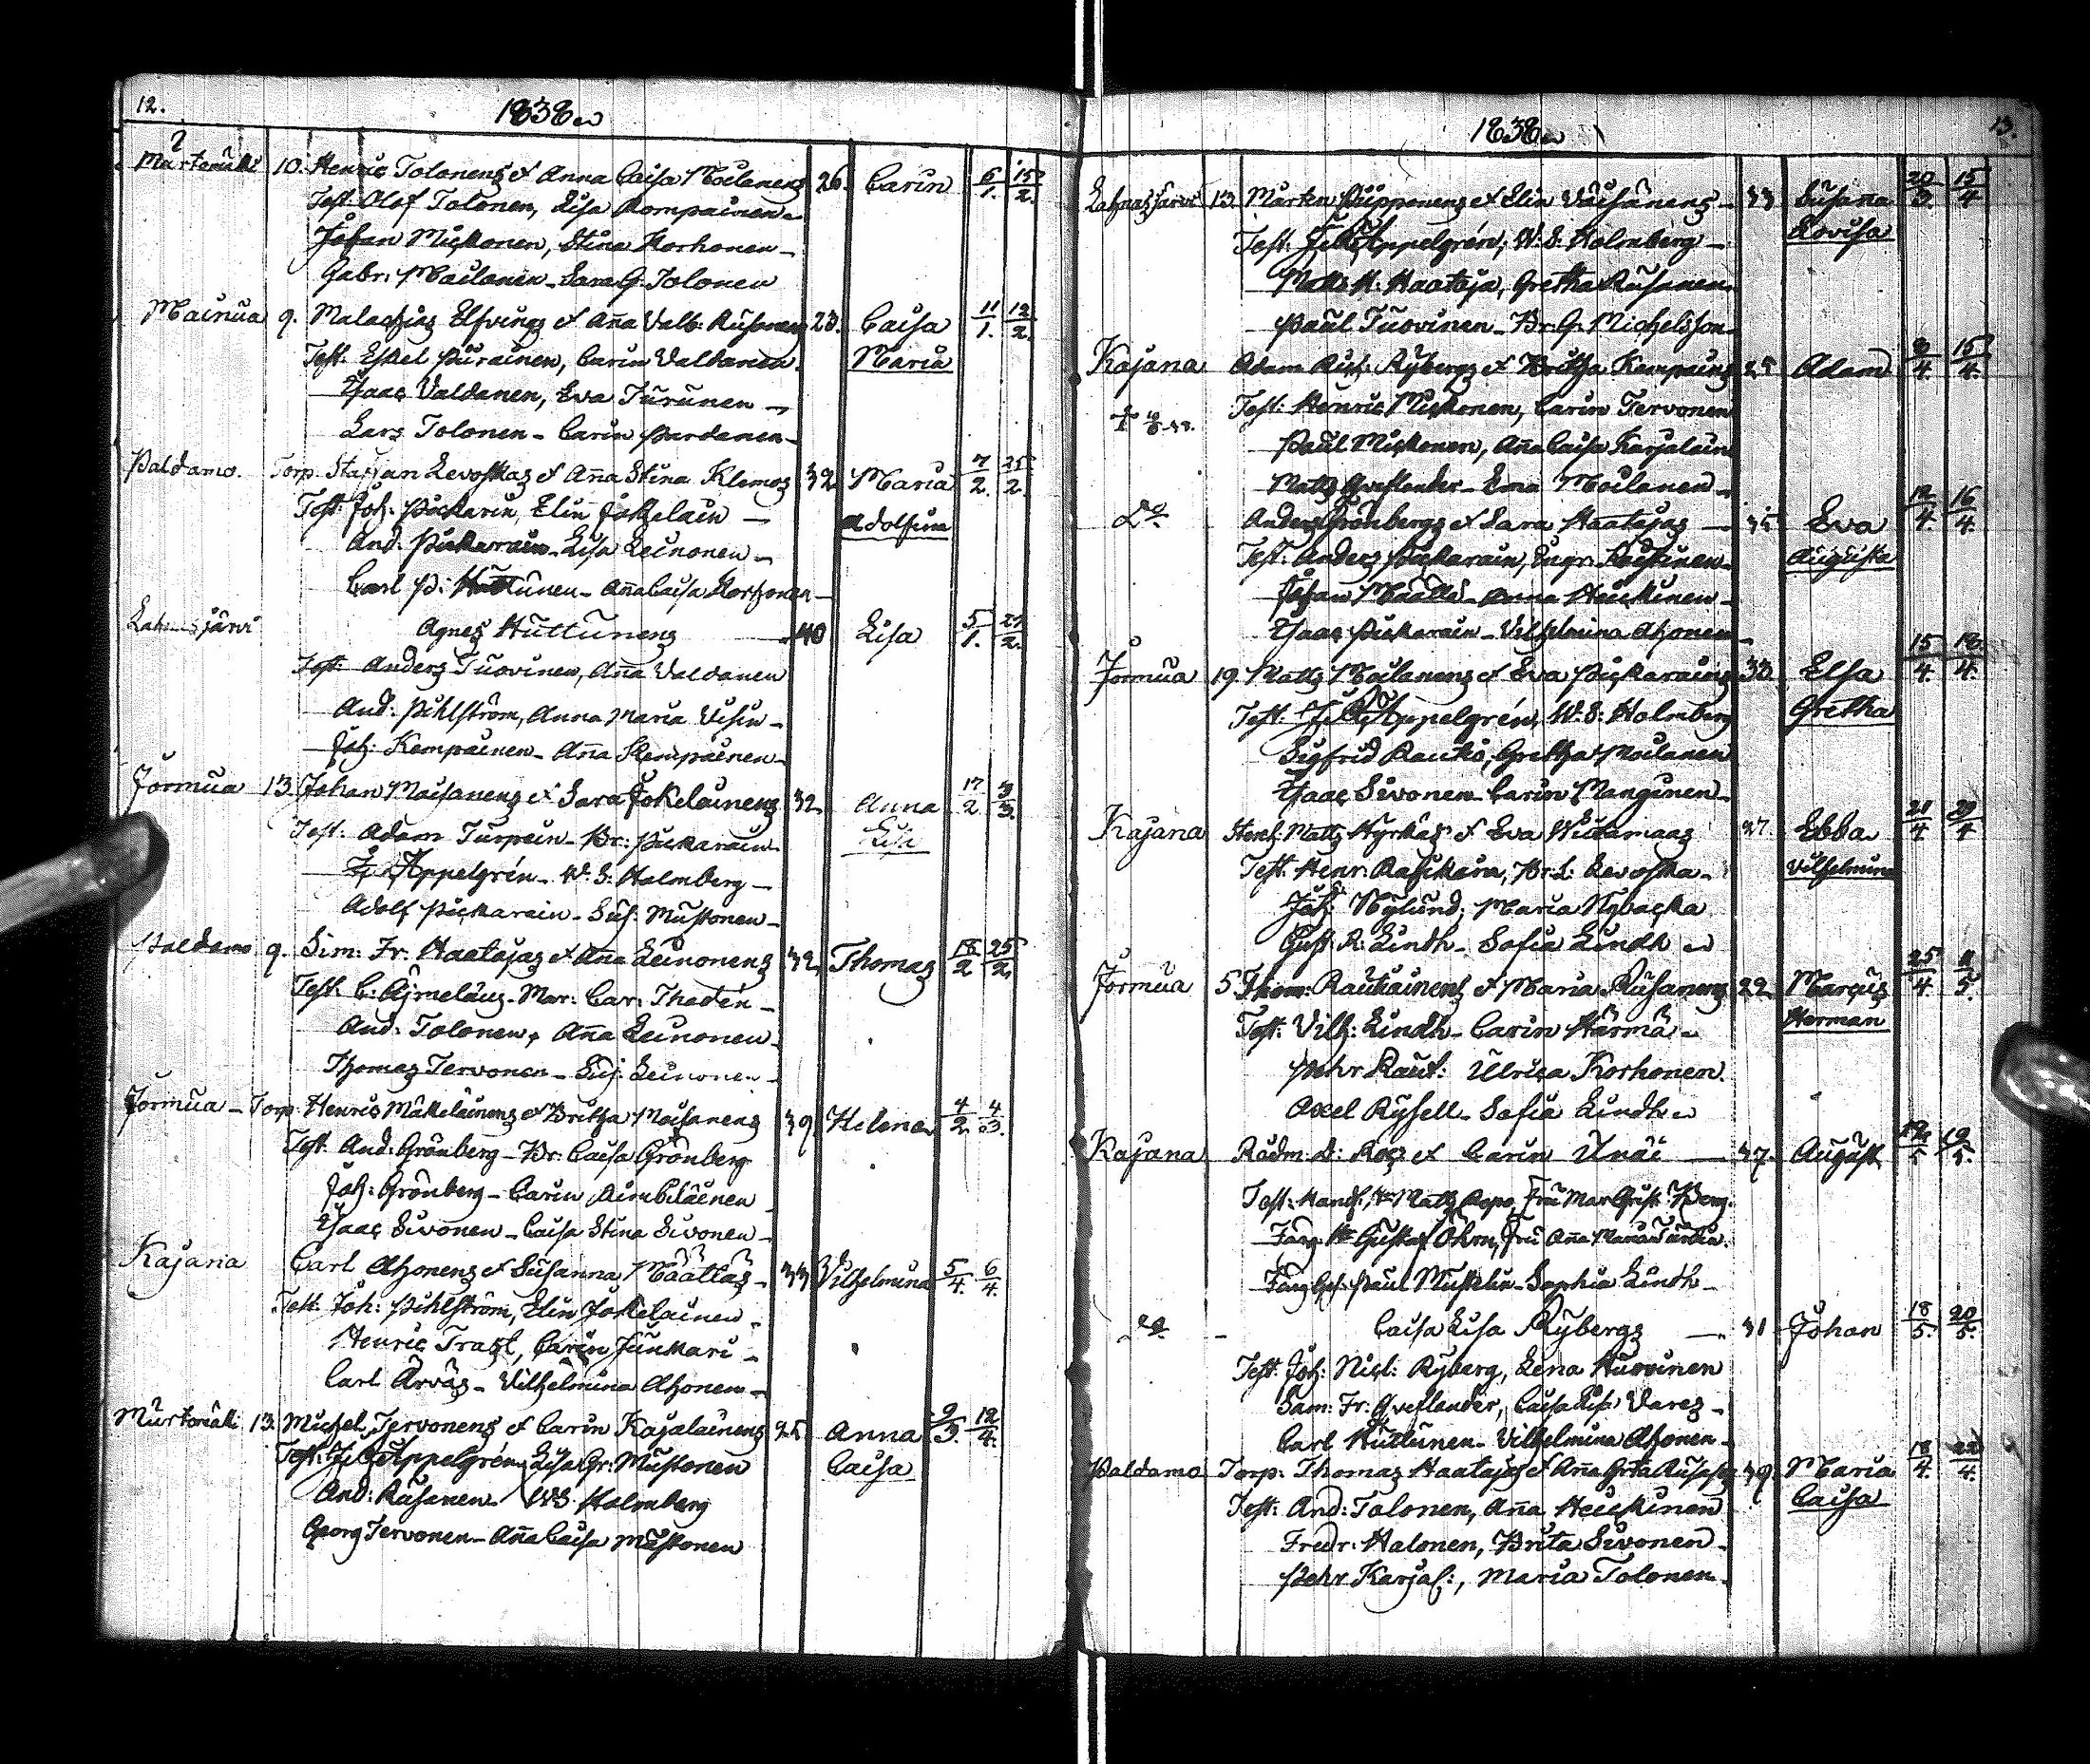 12.
1838
Murtomäki 10. Henric Tolonens et Anna Caisa Moilanens 26. Carin 6/1. 15/2.
Test: Olof Tolonen, Lisa Kompainen
Johan Mickonen, Stina Korhonen
Gabr: Moilanen Sara G. Tolonen
Mainua 9. Malachias Elfvings et Aña Valb: Rusanens 23. Caisa 11/1. 12/2.
Test: Eskel Pürainen, Carin Valdanen Maria
Isaac Valdanen, Eva Turunen
Lars Tolonen Carin Pardanen
Paldamo. Torp. Staffan Levoskas et Aña Stina Klemos 32 Maria 7/2. 25/2.
Test: Joh: Pickarin, Elin Jokelain Adolfina
And: Pickarain Lisa Leinonen
Carl P: Huttunen Aña Caisa Korhonen
järvi Agnes Huttunens 40 Lisa 5/1. /2.
Test: Anders Tuovinen, Aña Valdanen
And: Pihlström, Anna Maria
Joh: Kempainen Aña Kempainen
Jormua 13. Johan Maisanens et Sara Jokelainens 32 Anna 17/2. 3/3.
Test: Adam Turpein Br: Pickarain Lisa
Appelgrén W. S: Holmberg
Adolf Pickarain Sus: Mustonen
Paldamo 9. Sim: Fr. Haatajas et Aña Leinonens 32 Thomas 18/2 25/2
Test: C: Ajmeläus Mar: Car: Thedén
And: Tolonen, Aña Leinonen
Thomas Tervonen Sus: Leinonen
Jormua Torp. Henric Mäkeläinens et Britha Maisanens 39. Helena 4/2. 4/3.
Test: And: Grönberg Br: Caisa Grönberg
Joh: Grönberg Carin
Isaac Sivonen Caisa Stina Sivonen
Kajana Carl Ahonens et Susanna Määttäs 33 Vilhelmina 5/4. 6/4.
Test: Joh: Pihlström, Elin Jokelainen
Henric Trast, Carin Junkari
Carl Arväs Vilhelmina Ahonen
Murtomäki 13. Michel Tervonens et Carin Kajalainens 25 Anna 9/3. 12/4.
Test: Appelgrén, Lisa Gr: Mustonen Caisa
And: Rusanen WS Holmberg
Georg Tervonen Aña Caisa Mustonen
13.
1838
13. Mårten Püpponens et Elin Väisänens 33 Susaña 20/3. 15/4
Test: Appelgrén, W: S: Holmberg Lovisa
Matts H: Haataja, Gretha Rusanen
Paul Tuovinen Br: G: Michelsson
Kajana Adam Rybergs et Britha Kempains 25 Adam 8/4. 15/4.
Test: Henric Mickonen, Carin Tervonen
Paul Mickonen, Aña Caisa Karjalain
Matts Qveflander Moilanen
Do. Anders Grönbergs et Sara Haatajas 35 Eva 12/4. 16/4.
Test: Anders Pickarain, Ingr: Augusta
Johan Määttä Anna Heickinen
Isaac Pickarain Vilhelmina Ahonen
Jormua 19. Matts Moilanens et Eva Pickarains 33 Elsa 15/4. 18/4.
Test: Appelgrén, W. S: Holmberg Gretha
Sigfrid Rautio, Gretha Moilanen
Isaac Sivonen Carin Manginen
Kajana Matts Hyrkäs et Eva 37 Ebba 21/4 29/4
Test: Henr: Br: L: Levoska Vilhelmina
Joh: Nylund, Maria Nybacka
Gust: A: Lindh Sofia Lindh
Jormua 5 Thom: Rautiainens et Maria Rusanens 22 Marcus 25/4. 11/5.
Test: Vilh: Lindh Carin Härmä Herman
Pehr Raut: Ulrica Korhonen
Axel Rysell Sofia Lindh
Kajana Rådm: et Carin 37. August 19/5.
Test: Matts Fru Berg.
Gustaf Öhrn, Fru Aña Maria
Paul Sophia Lindh
Do. Caisa Lisa Rybergs 31 Johan 18/5. 20/5.
Test: Joh: Nicl: Ryberg, Lena Hurvinen
Sam: Fr: Qveflander, Caisa Lisa Vares
Carl Huttunen Vilhelmina Ahonen
Paldamo Torp: Thomas Haatajas et Aña Grta 39. Maria 18/4. 22/4.
Test: And: Tolonen, Aña Heickinen Caisa
Fredr: Halonen, Brita Sivonen
Pehr Karjal:, Maria Tolonen